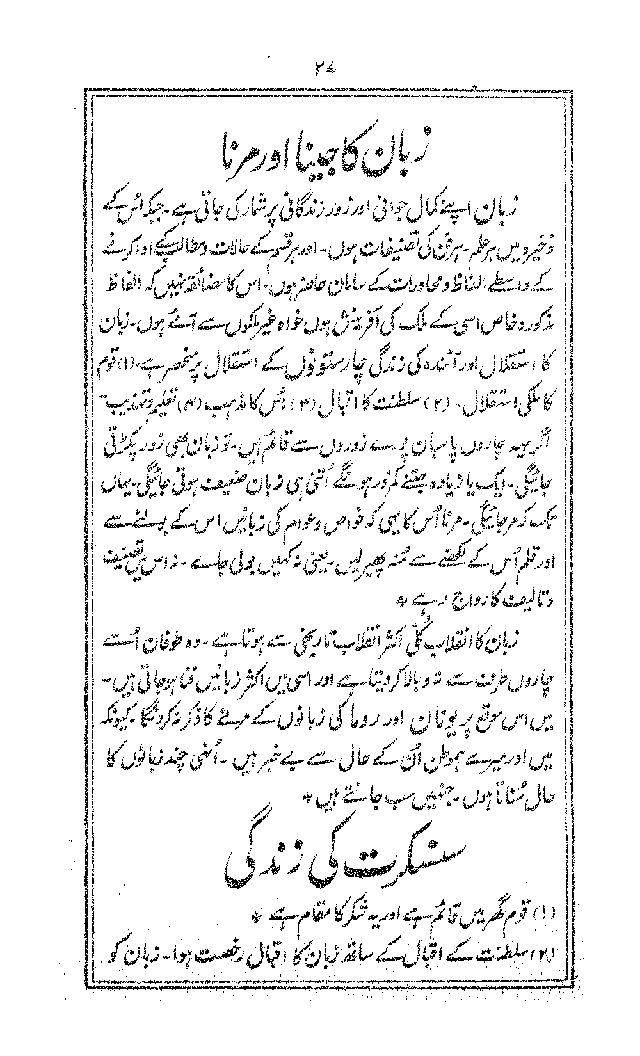 ۲۷
زبان کا جینا اور مرنا
زبان اپنے کمال جوانی اور زور زندگانی پر شمار کی جاتی ہے۔ جبکہ اُس کے
ذخیرہ میں ہر علم۔ ہر فن کی تصنیفات ہوں۔ اور ہر قسم کے حالات و مطالب کے ادا کرنے
کے واسطے الفاظ و محاورات کے سامان حاضر ہوں۔ اس کا مضائقہ نہیں کہ الفاظ
مذکورہ خاص اسی کے ملک کی آفرینش ہوں خواہ غیر ملکوں سے آئے ہوں۔ زبان
کا استقلال اور آئندہ کی زندگی چار ستونوں کے استقلال پر منحصر ہے۔ (۱) قوم
کا ملکی استقلال۔ (۲) سلطنت کا اقبال (۳) اُس کا مذہب (۴) تعلیم و تہذیب۔
اگر یہہ چاروں پاسبان پورے زوروں سے قائم ہیں۔ تو زبان بھی زور پکڑتی
جائیگی۔ ایک یا زیادہ جتنے کمزور ہونگے اُتنی ہی زبان ضعیف ہوتی جائیگی۔ یہاں
تک کہ مر جائیگی۔ مرنا اُس کا یہی کہ خواص و عوام کی زبانیں اس کے بولنے سے
اور قلم اُس کے لکھنے سے مُنہ پھیر لیں۔ یعنی نہ کہیں بولی جاے۔ نہ اس میں تصنیف
و تالیف کا رواج رہے ٭
زبان کا انقلاب کُلّی اکثر انقلاب تاریخی سے ہوتا ہے۔ وہ طوفان اُسے
چاروں طرف سے تہ و بالا کر دیتا ہے اور اسی میں اکثر زبانیں فنا ہو جاتی ہیں۔
میں اس موقع پر یونان اور روما کی زبانوں کے مرنے کا ذکر نہ کرونگا۔ کیونکہ
میں اور میرے ہموطن اُن کے حال سے بے خبر ہیں۔ اُنہی چند زبانوں کا
حال سُناتا ہوں۔ جنہیں سب جانتے ہیں ٭
سنسکرت کی زندگی
(۱) قوم گھر میں قائم ہے اور یہ شکر کا مقام ہے ٭
(۲) سلطنت کے اقبال کے ساتھ زبان کا اقبال رخصت ہوا۔ زبان کو